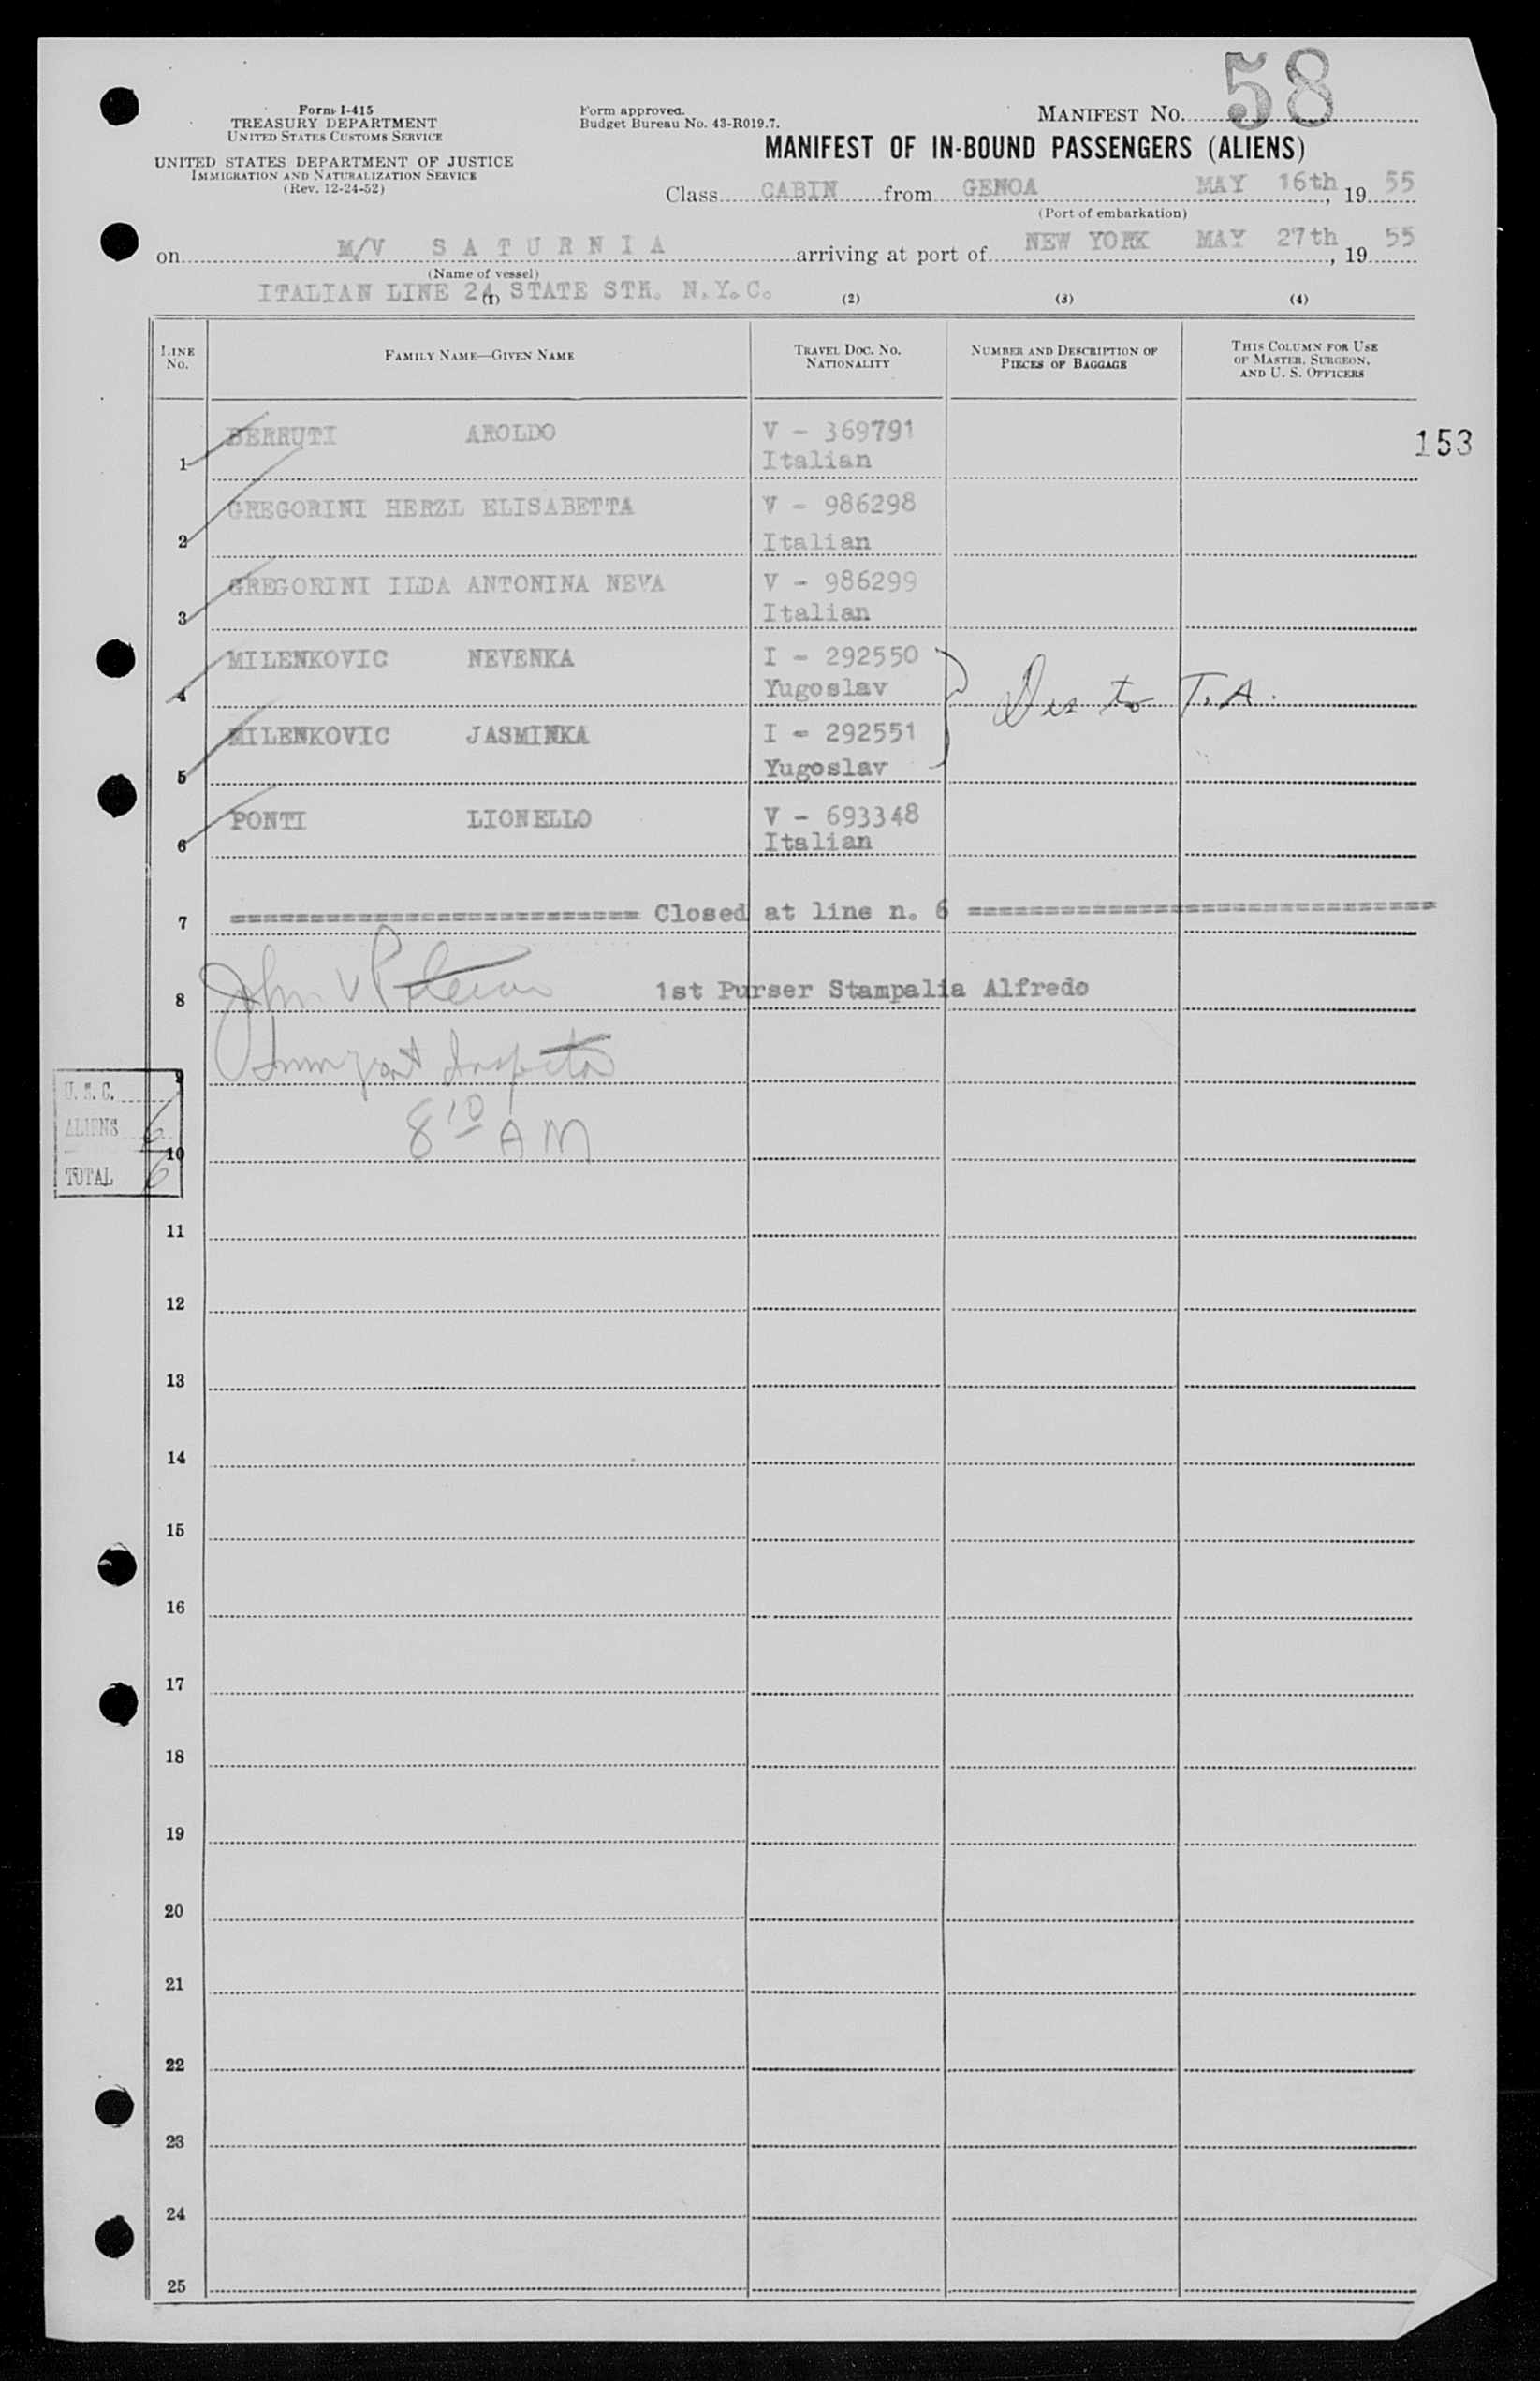 58
Form I-415
TREASURY DEPARTMENT
UNITED STATES CUSTOMS SERVICE
UNITED STATES DEPARTMENT OF JUSTICE
IMMIGRATION AND NATURALIZATION SERVICE
(Rev. 12-24-52)
Form approved.
Budget Bureau No. 43-R019.7.
MANIFEST NO.
MANIFEST OF IN-BOUND PASSENGERS (ALIENS)
Class CABIN from GENOA MAY 16th, 19 55
(Port of embarkation)
on M/V SATURNIA arriving at port of NEW YORK MAY 27th, 19 55
(Name of vessel)
ITALIAN LINE 24 STATE STR. N.Y.C.
(1) (2) (3) (4)
LINE No. FAMILY NAME—GIVEN NAME TRAVEL DOC. NO. NATIONALITY NUMBER AND DESCRIPTION OF PIECES OF BAGGAGE THIS COLUMN FOR USE OF MASTER, SURGEON, AND U. S. OFFICERS
1 BERRUTI AROLDO V - 369791 153
Italian
2 GREGORINI HERZL ELISABETTA V - 986298
Italian
3 GREGORINI ILDA ANTONINA NEVA V - 986299
Italian
4 MILENKOVIC NEVENKA I - 292550
Yugoslav
Des to T.A.
5 MILENKOVIC JASMINKA I - 292551
Yugoslav
6 PONTI LIONELLO V - 693348
Italian
7 =========================== Closed at line n. 6 ===============================
8 John V 1st Purser Stampalia Alfredo
9 Immigrant Inspector
8 10 AM
U. S. C.
ALIENS 6
10
TOTAL 6
11
12
13
14
15
16
17
18
19
20
21
22
23
24
25